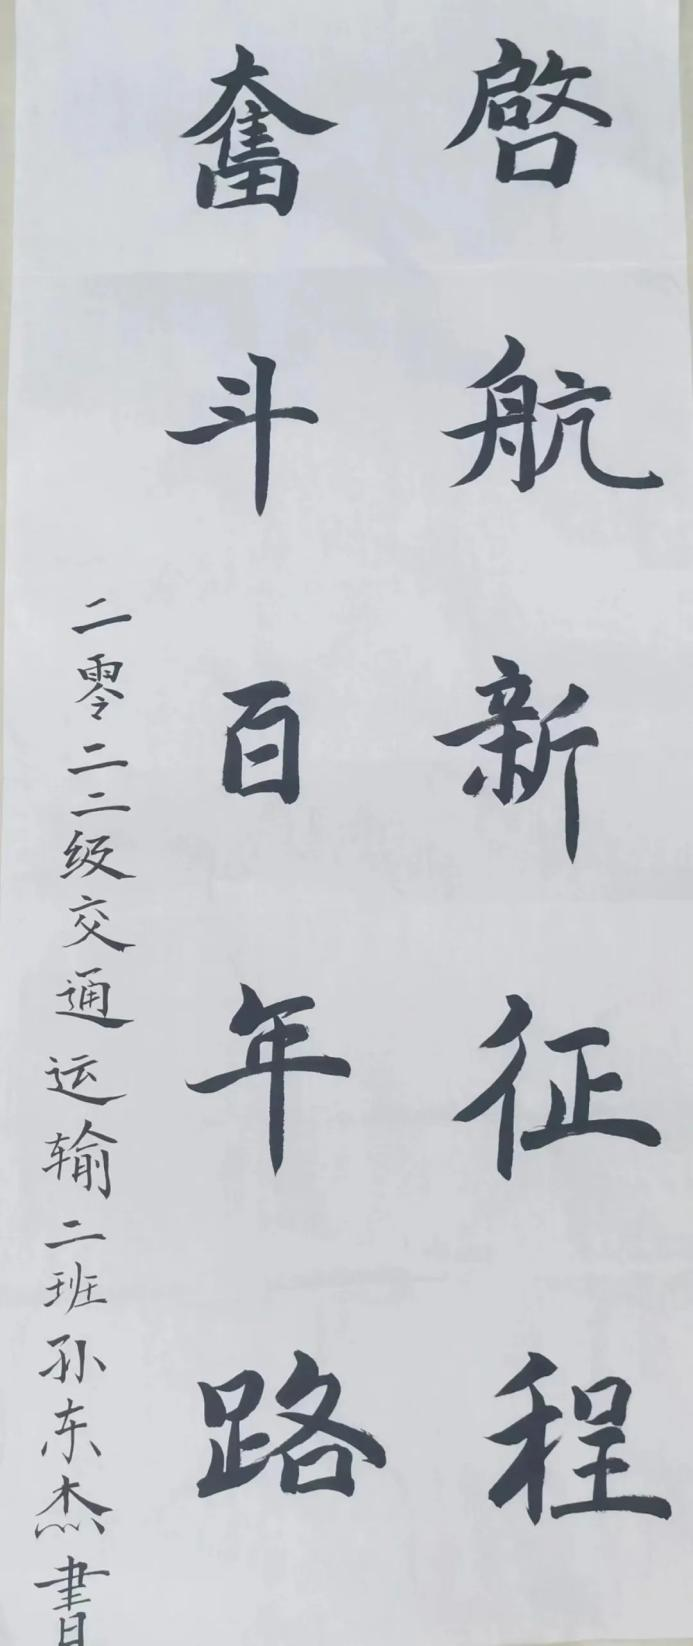 啓航新征程
奮斗百年路
二零二二级交通运输二班孙东杰書